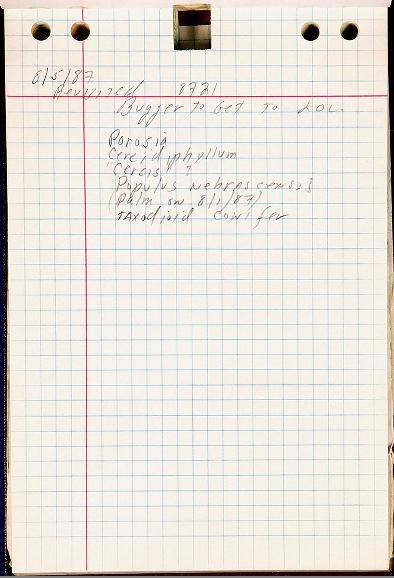 8/5/87
Revisited 8721
Bugger to Get to LOL.
Porosia
Cercidiphyllum
"Cercis" ?
Populus nebrascensis
(Palm on 8/1/87)
TAxodioid conifer